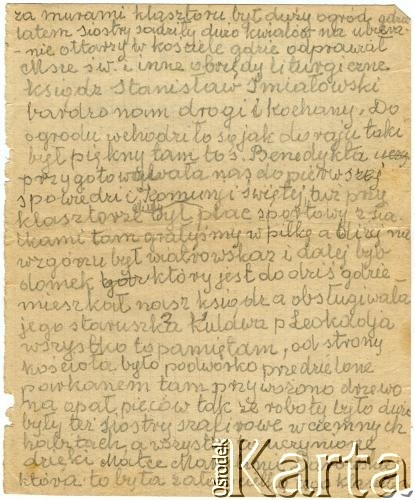 za murami klasztoru był duży ogród gdzie
latem siostry sadziły dużo kwiatów na ubiera-
-nie ołtarzy w kościele gdzie odprawiał
Msze św. i inne obrzędy liturgiczne
ksiądz Stanisław Śmiałowski
bardzo nam drogi i kochany. Do
ogrodu wchodziło się jak do raju taki
był piękny tam to s. Benedykta
przygotowywała nas do pierwszej
spowiedzi i komuni świętej tuż przy
klasztorze był plac sportowy z
tam grałyśmy w piłkę a bliżej na
wzgórzu był wiatrowskaz i dalej był
domek który jest do dziś gdzie
mieszkał nasz ksiądz a obsługiwała
jego staruszka p Leokadja
wszystko to pamiętam, od strony
kościoła było podwórko przedzielone
parkanem tam przywożono drzewo
na opał pieców tak że roboty było dużo
były też siostry szafirowe w ciemnych
habitach, a wszystko
dzięki Matce
która to była
Ośrodek Karta